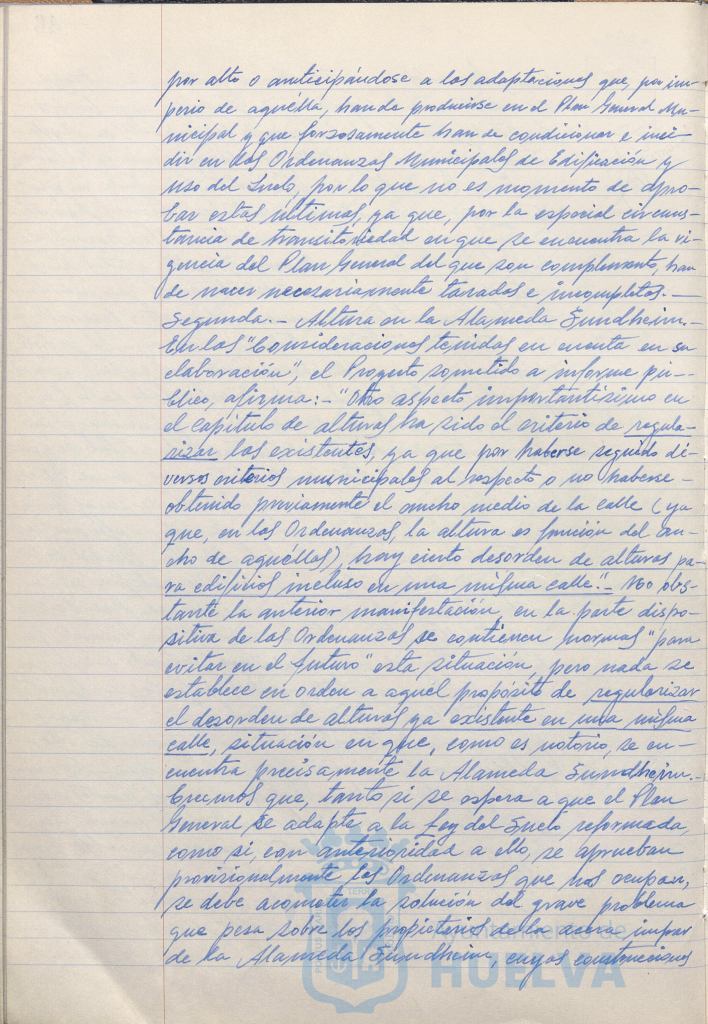 por alto o anticipándose a las adaptaciones que, por im-
perio de aquélla, han de producirse en el Plan General Mu-
nicipal y que forzosamente han de condicionar e inci-
dir en las Ordenanzas Municipales de Edificación y
uso del Suelo, por lo que no es momento de apro-
bar estas últimas, ya que, por la especial circuns-
tancia de transitoriedad en que se encuentra la vi-
gencia del Plan General del que son complemento, han
de nacer necesariamente taradas e incompletas.—
Segunda.- Altura en la Alameda Sundheim.-
En las "Consideraciones tenidas en cuenta en su
elaboración", el Proyecto sometido a informe pú-
blico, afirma:-"Otro aspecto importantísimo en
el capítulo de alturas ha sido el criterio de regula-
rizar las existentes, ya que por haberse seguido di-
versos criterios municipales al respecto o no haberse
obtenido previamente el ancho medio de la calle (ya
que, en las Ordenanzas, la altura es función del an-
cho de aquéllas) hay cierto desorden de alturas pa-
ra edificios incluso en una misma calle".- No obs-
tante la anterior manifestación, en la parte dispo-
sitiva de las Ordenanzas se contienen normas "para
evitar en el futuro" esta situación, pero nada se
establece en orden a aquel propósito de regularizar
el desorden de alturas ya existente en una misma
calle, situación en que, como es notorio, se en-
cuentra precisamente la Alameda Sundheim.-
Creemos que, tanto si se espera a que el Plan
General se adapte a la Ley del Suelo reformada,
como si, con anterioridad a ello, se aprueban
provisionalmente las Ordenanzas que nos ocupan,
se debe acometer la solución del grave problema
que pesa sobre los propietarios de la acera impar
de la Alameda Sundheim, cuyas construcciones
Ayuntamiento de
HUELVA